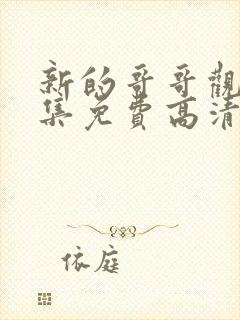 新的哥哥觀
集免費高清
依庭